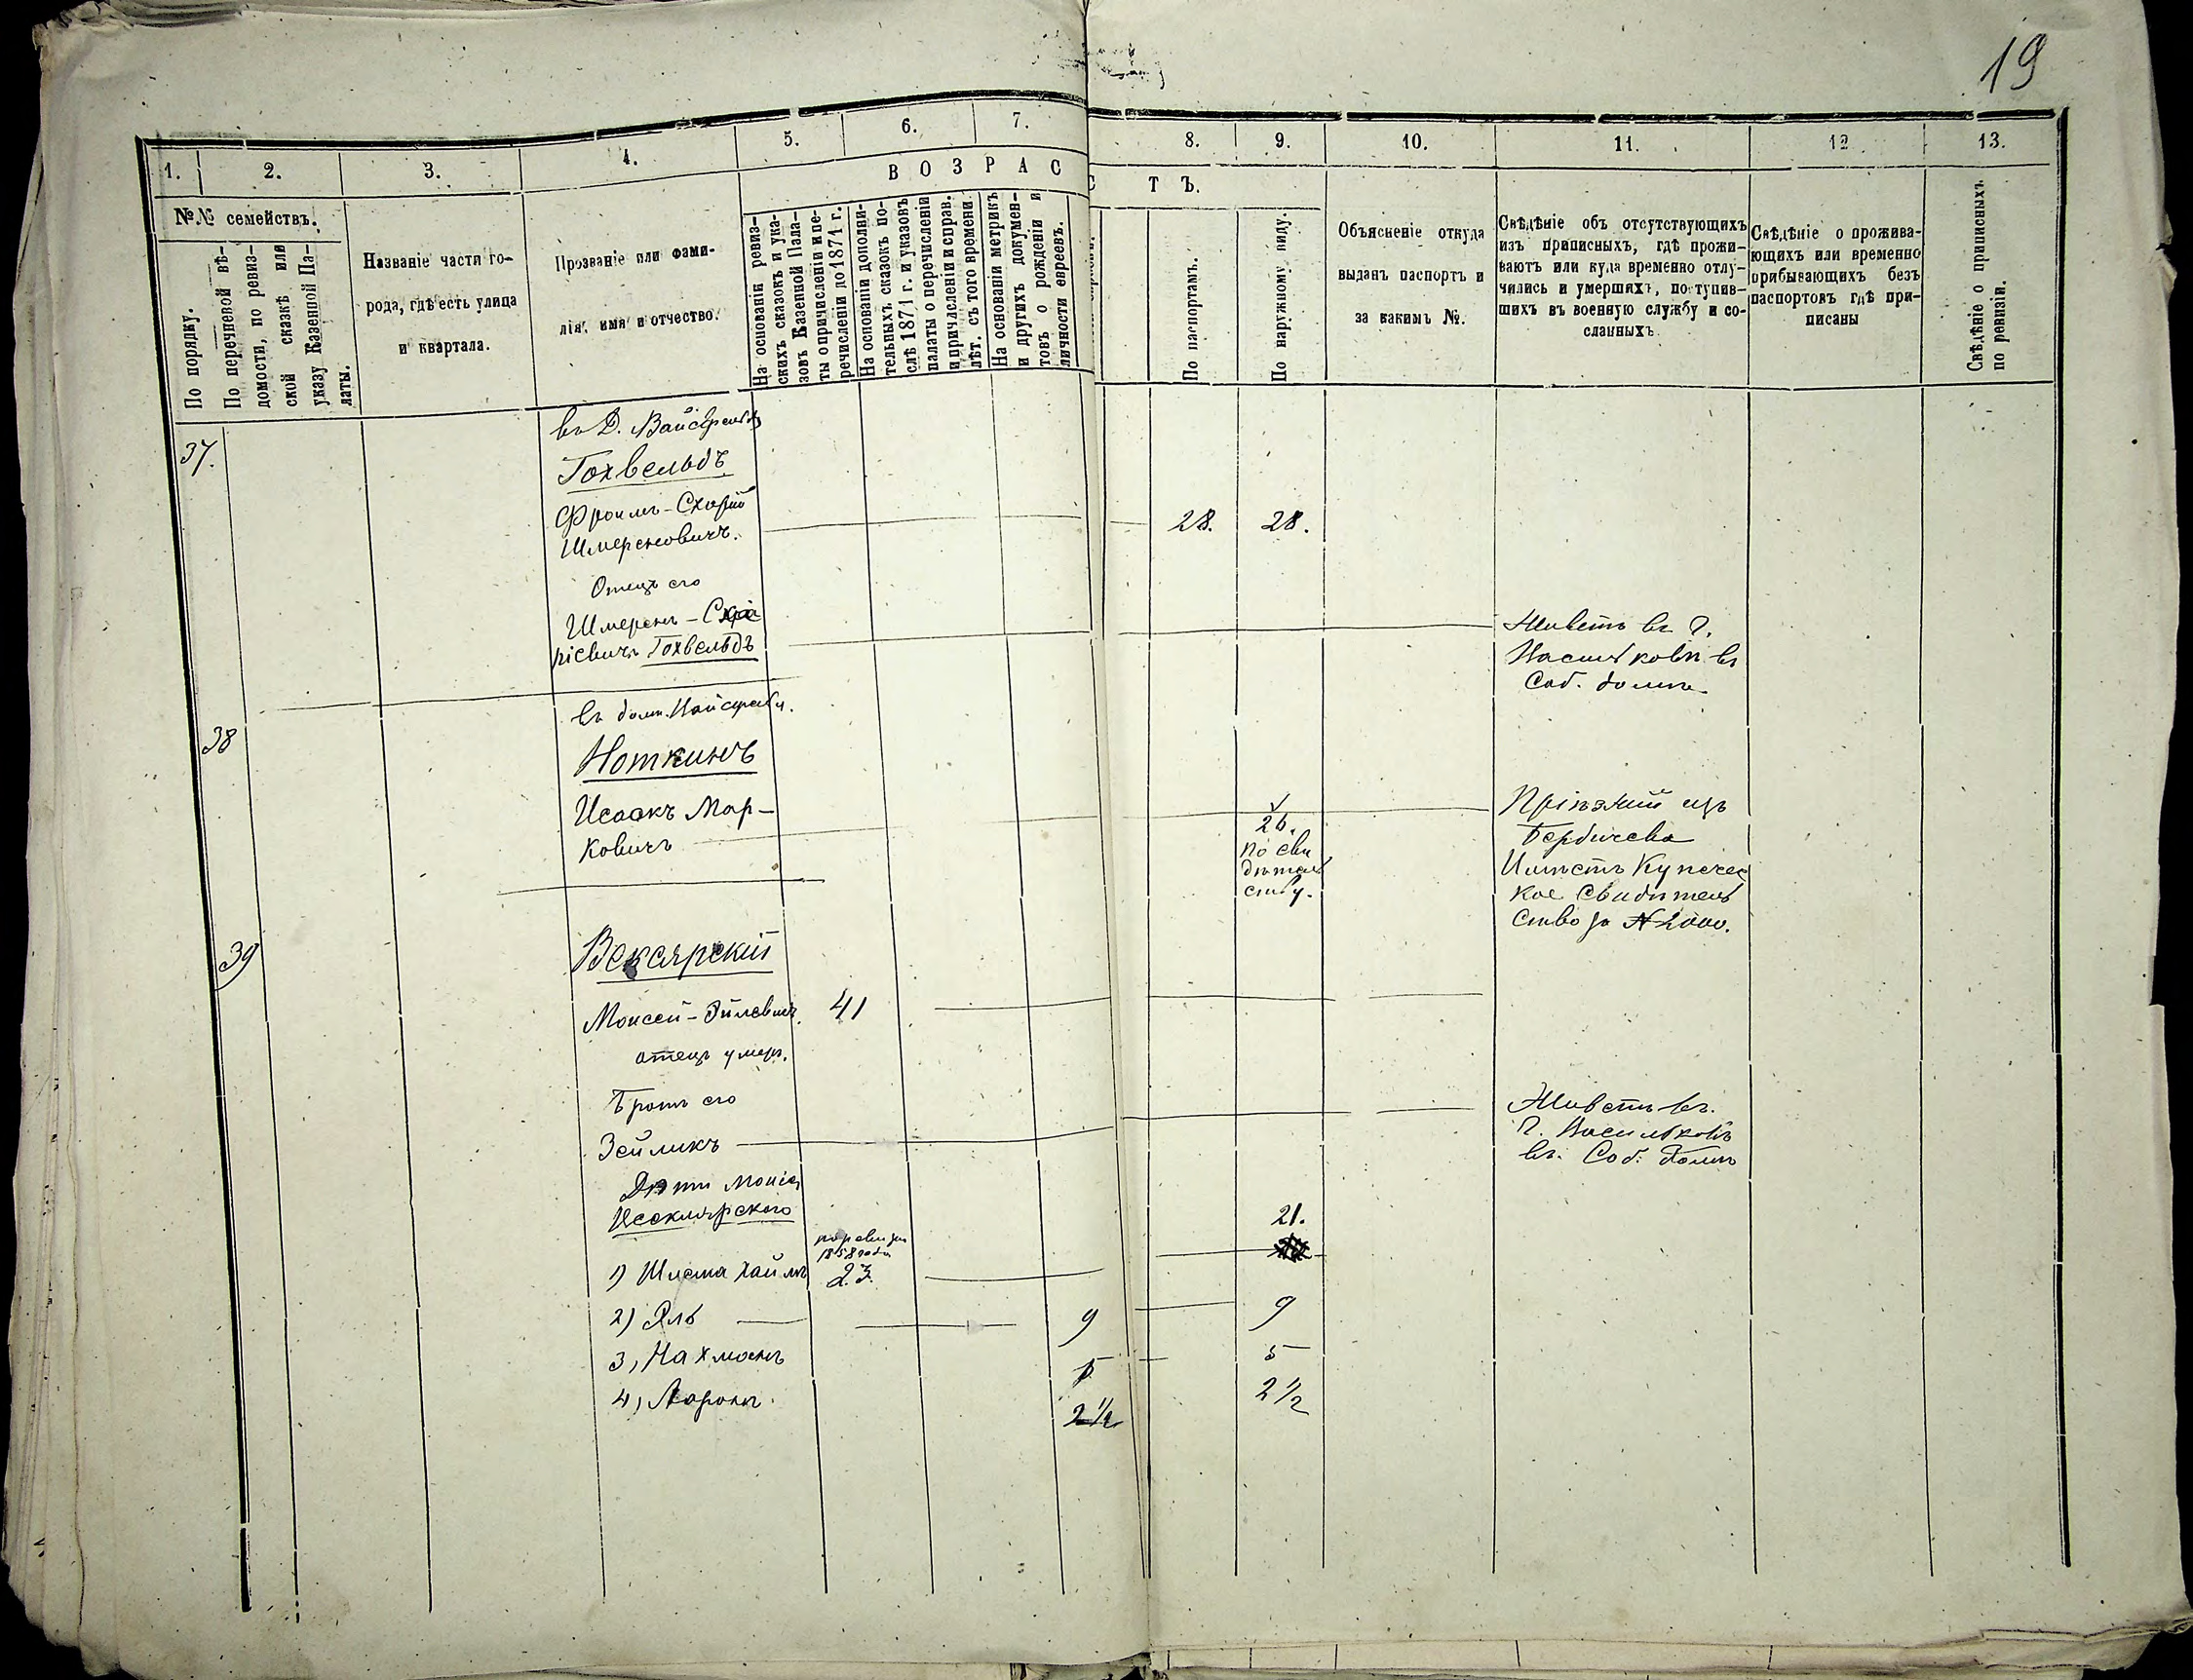 19
1. 2. 3. 4. 5. 6. 7. 8. 9. 10. 11. 12 13.
ВОЗРАСТЪ.
№№ семействъ.
По порядку.
По перечневой вѣ-
домости, по ревиз-
ской сказкѣ или
указу Казенной Па-
латы.
Названіе части го-
рода, гдѣ есть улица
и квартала.
Прозваніе или фами-
лія, имя и отчество.
На основаніи ревиз-
скихъ сказокъ и ука-
зовъ Казенной Пала-
ты о причисленіи и пе-
речисленіи до 1871 г.
На основаніи дополни-
тельныхъ сказокъ по-
слѣ 1871 г. и указовъ
палаты о перечисленіи
и причисленіи и справ.
лѣт. съ того времени.
На основаніи метрикъ
и другихъ докумен-
товъ о рожденіи и
личности евреевъ.
По паспортамъ.
По наружному виду.
Объясненіе откуда
выданъ паспортъ и
за какимъ №.
Свѣдѣніе объ отсутствующихъ
изъ приписныхъ, гдѣ прожи-
ваютъ или куда временно отлу-
чились и умершихъ, поступив-
шихъ въ военную службу и со-
сланныхъ.
Свѣдѣніе о прожива-
ющихъ или временно
прибывающихъ безъ
паспортовъ гдѣ при-
писаны
Свѣдѣніе о приписныхъ
по ревизіи.
37.
въ Д.
Гохвельдъ
Фроимъ-
Шмерковичъ. 28. 28.
Отецъ его
Шмеркъ-
ріевичъ Гохвельдъ
Живетъ въ Г.
Васильковѣ въ
Соб. домѣ.
38
въ дом.
Ноткинъ
Исаакъ Мар-
ковичъ
26.
по сви
дѣтель
ству.
Пріѣзжій изъ
Бердичева
Имѣетъ Купечес
кое Свидѣтель
ство за № 2000.
39
Моисей- 41
отецъ умеръ.
Братъ его
Зейликъ
Живетъ въ.
Г. Васильковѣ
въ. Соб. домѣ
Дѣти Моисея
по ревизіи
1858 года
1) Шлема Хаимъ 23. 21.
2) Эль 9 9
3) Нахманъ 5 5
4) Ааронъ. 2 1/2 2 1/2